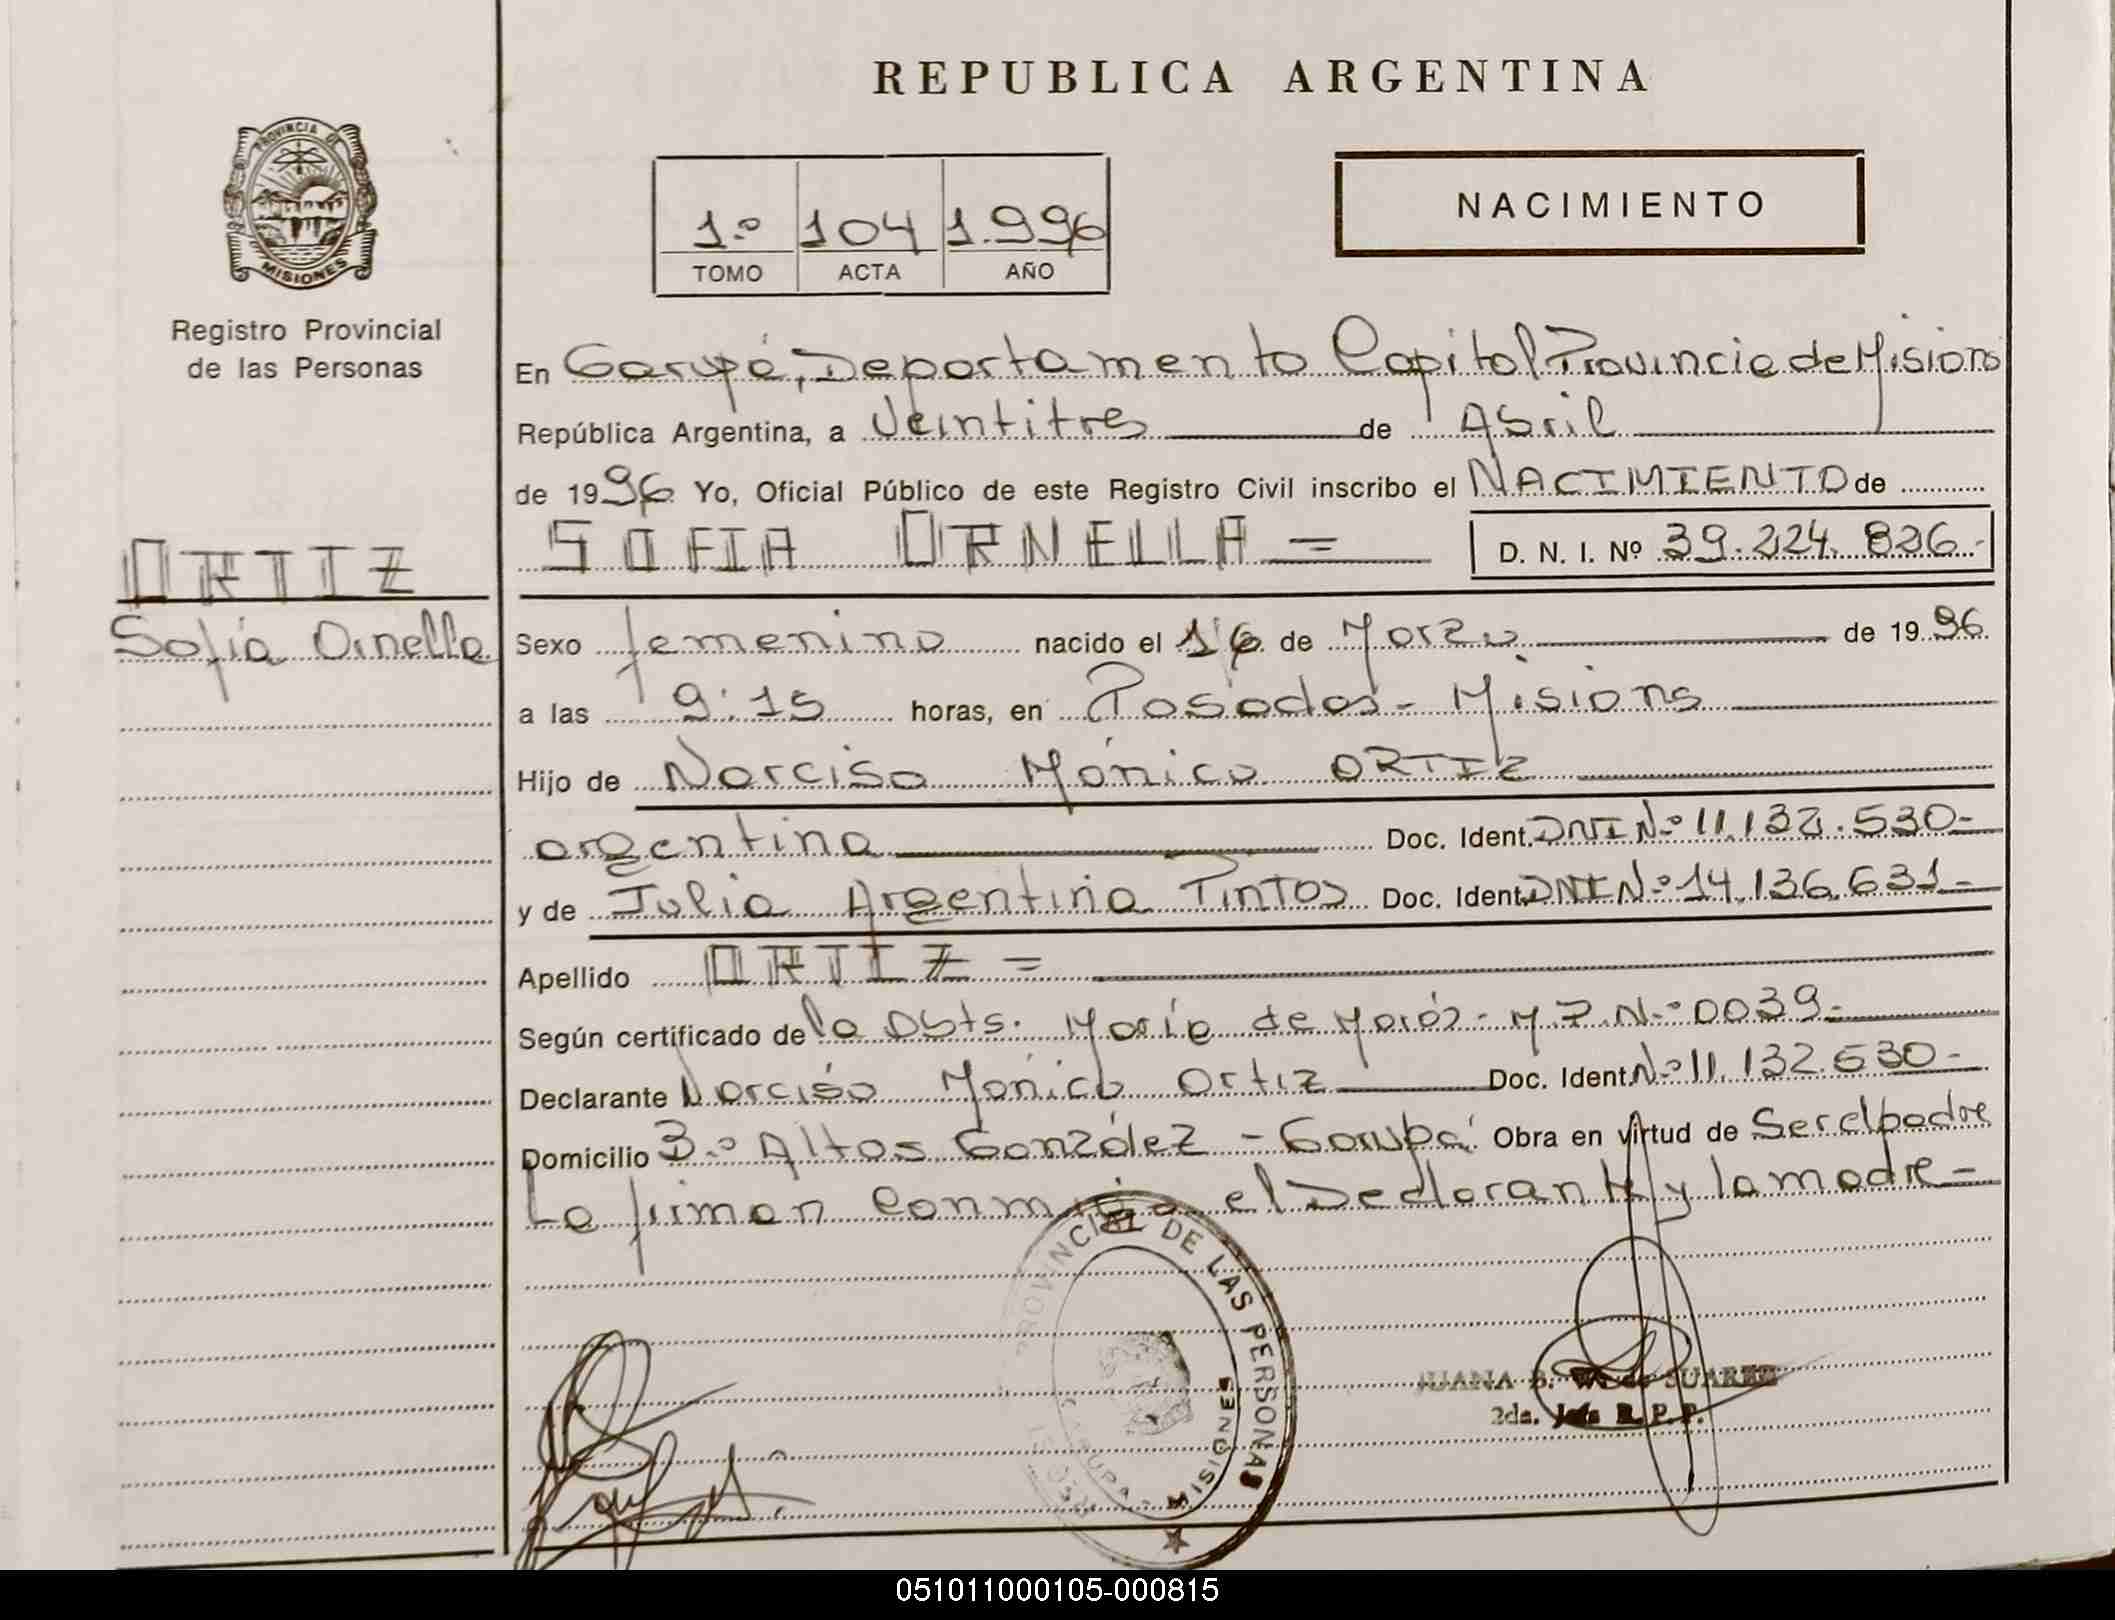 REPUBLICA ARGENTINA
PROVINCIA DE
MISIONES
Registro Provincial
de las Personas
1.º 104 1.996
TOMO ACTA AÑO
NACIMIENTO
En Garupá, Departamento Capital Provincia de Misiones
República Argentina, a Veintitres de Abril
de 1996 Yo, Oficial Público de este Registro Civil inscribo el NACIMIENTO de
SOFIA ORNELLA =
D. N. I. Nº 39.224.826-
ORTIZ
Sofía Ornella
Sexo femenino nacido el 16 de Marzo de 1996
a las 9:15 horas, en Posadas - Misiones
Hijo de Narciso Mónico ORTIZ
argentino Doc. Ident. DNI N.º 11.132.530-
y de Julia Argentina PINTOS Doc. Ident. DNI N.º 14.136.631-
Apellido ORTIZ =
Según certificado de la Obts. María de - M.P. N.º 0039-
Declarante Narciso Mónico Ortiz Doc. Ident. N.º 11.132.530-
Domicilio B.º Altos González - Garupá. Obra en virtud de Ser el padre
La firman conmigo el Declarante y la madre =
PROVINCIAL DE LAS PERSONAS
GARUPA - MISIONES
JUANA B. de SUAREZ
2da. Jefa R. P. P.
051011000105-000815